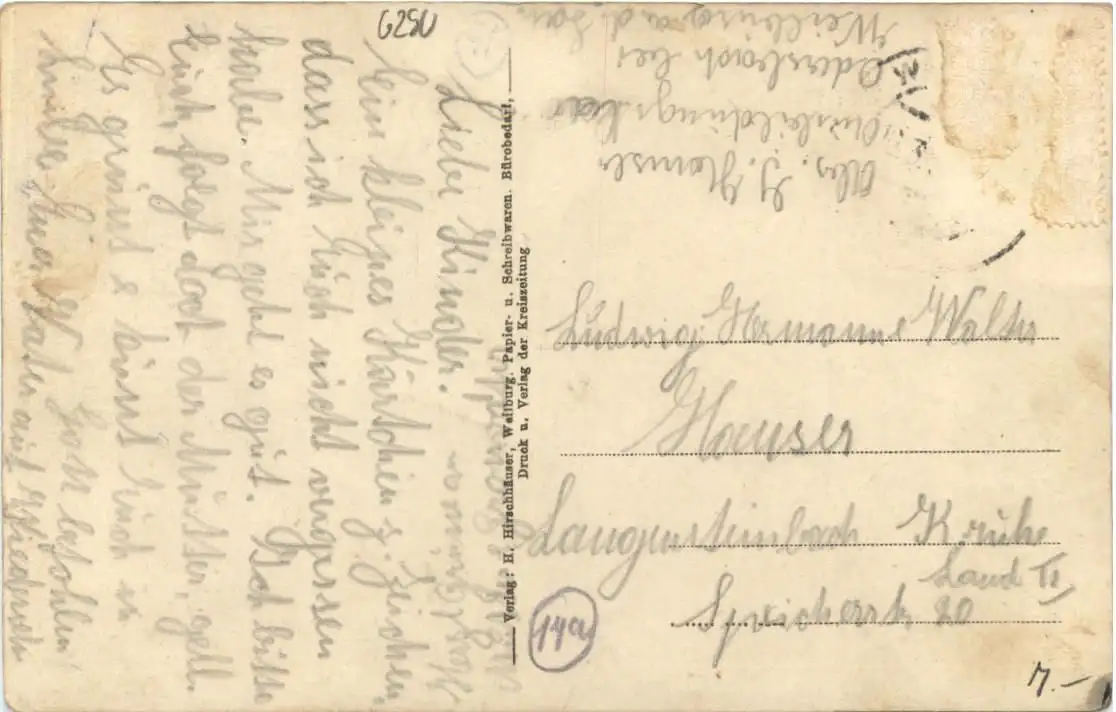 6250
Lieber Kinder.
Ein kleines Kärtchen z. Zeichen
dass ich Euch nicht vergessen
habe. Mir geht es gut. Ich bitte
Euch, folgt doch der Mutter, gell.
Es grüsst & küsst Euch
Euer Vater auf Wiedersehn
Gott befohlen!
Verlag: H. Hirschhäuser, Weilburg. Papier- u. Schreibwaren. Bürobedarf,
Druck u. Verlag der Kreiszeitung
Abs. J. Hauser
Ausbildungslager
Odersbach bei
Weilburg a. d. Lan.
Ludwig Hermann Walter
Hauser
Langensteinbach Kruhe
Land II
Speicherstr 20
14a
7.–